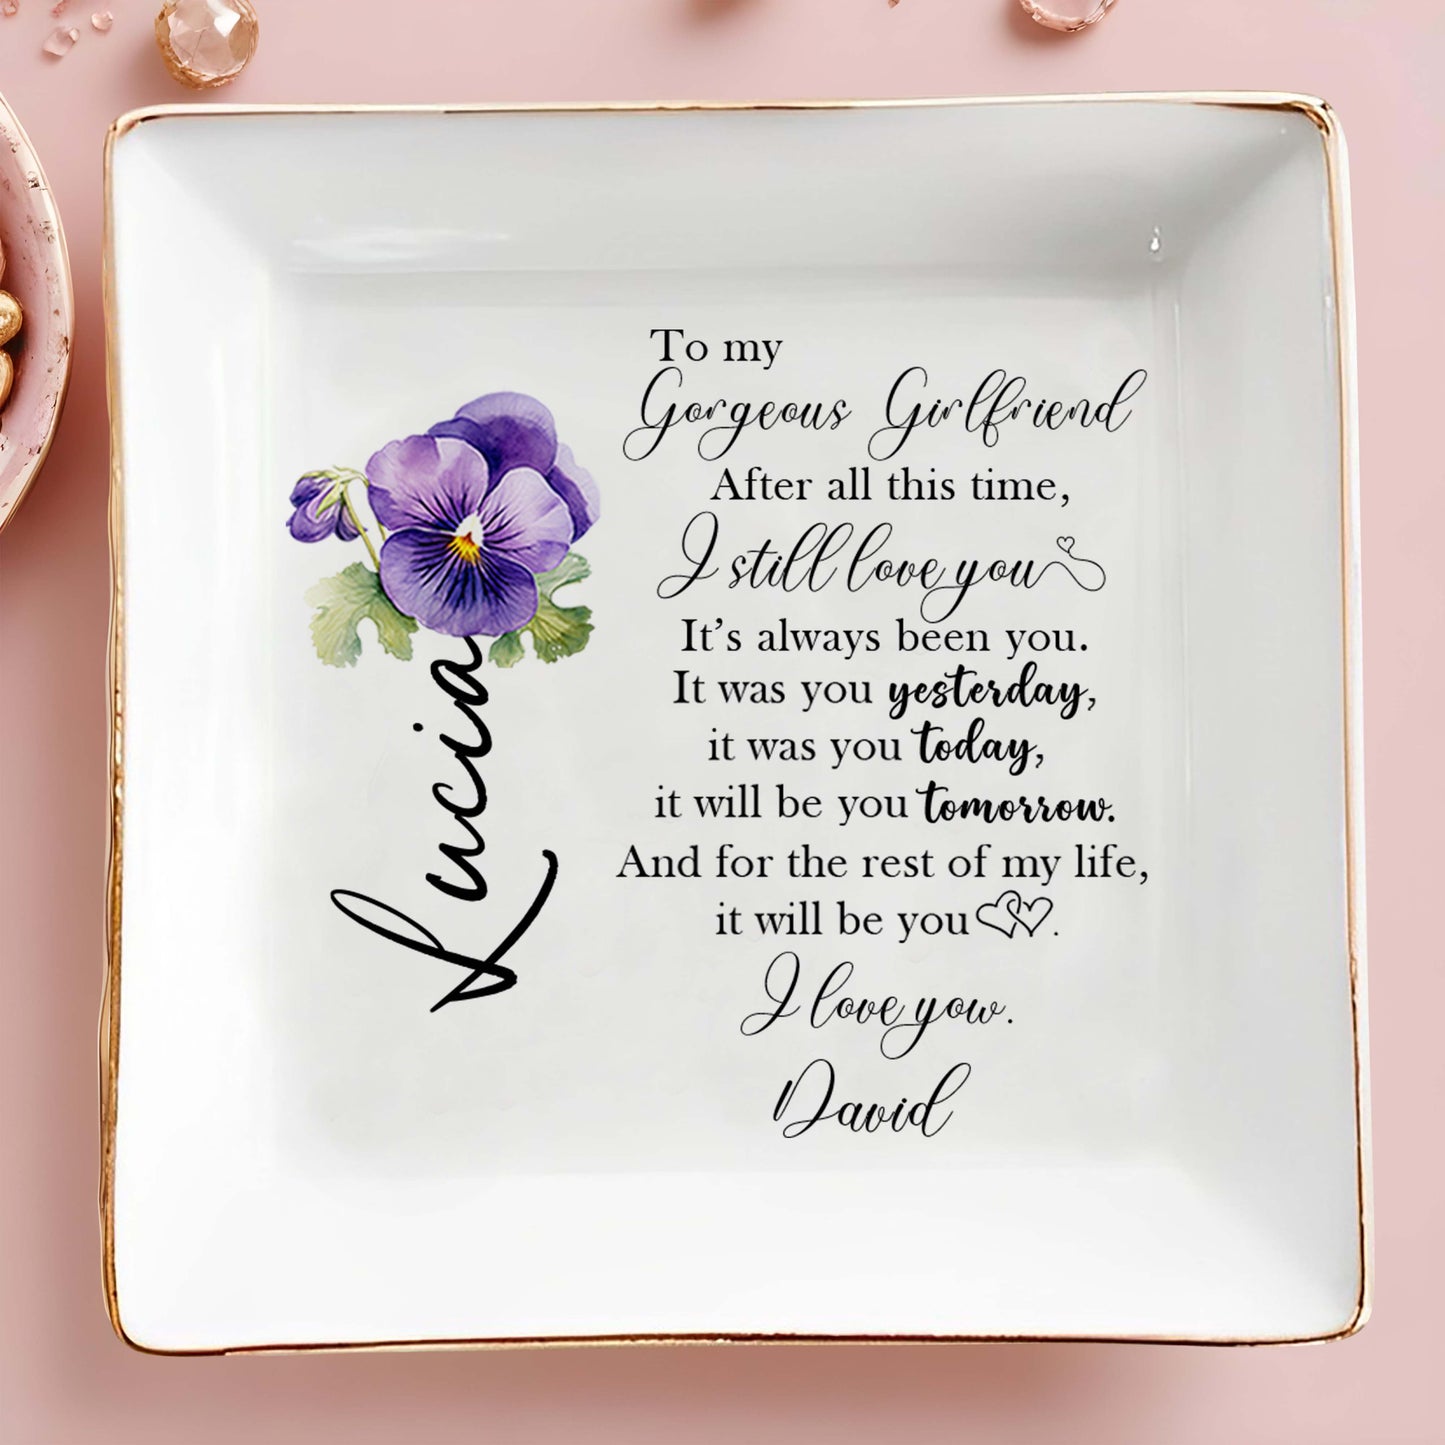 To my
Gorgeous Girlfriend
After all this time,
I still love you
It's always been you.
It was you yesterday,
it was you today,
it will be you tomorrow.
And for the rest of my life,
it will be you.
I love you.
David
Lucia